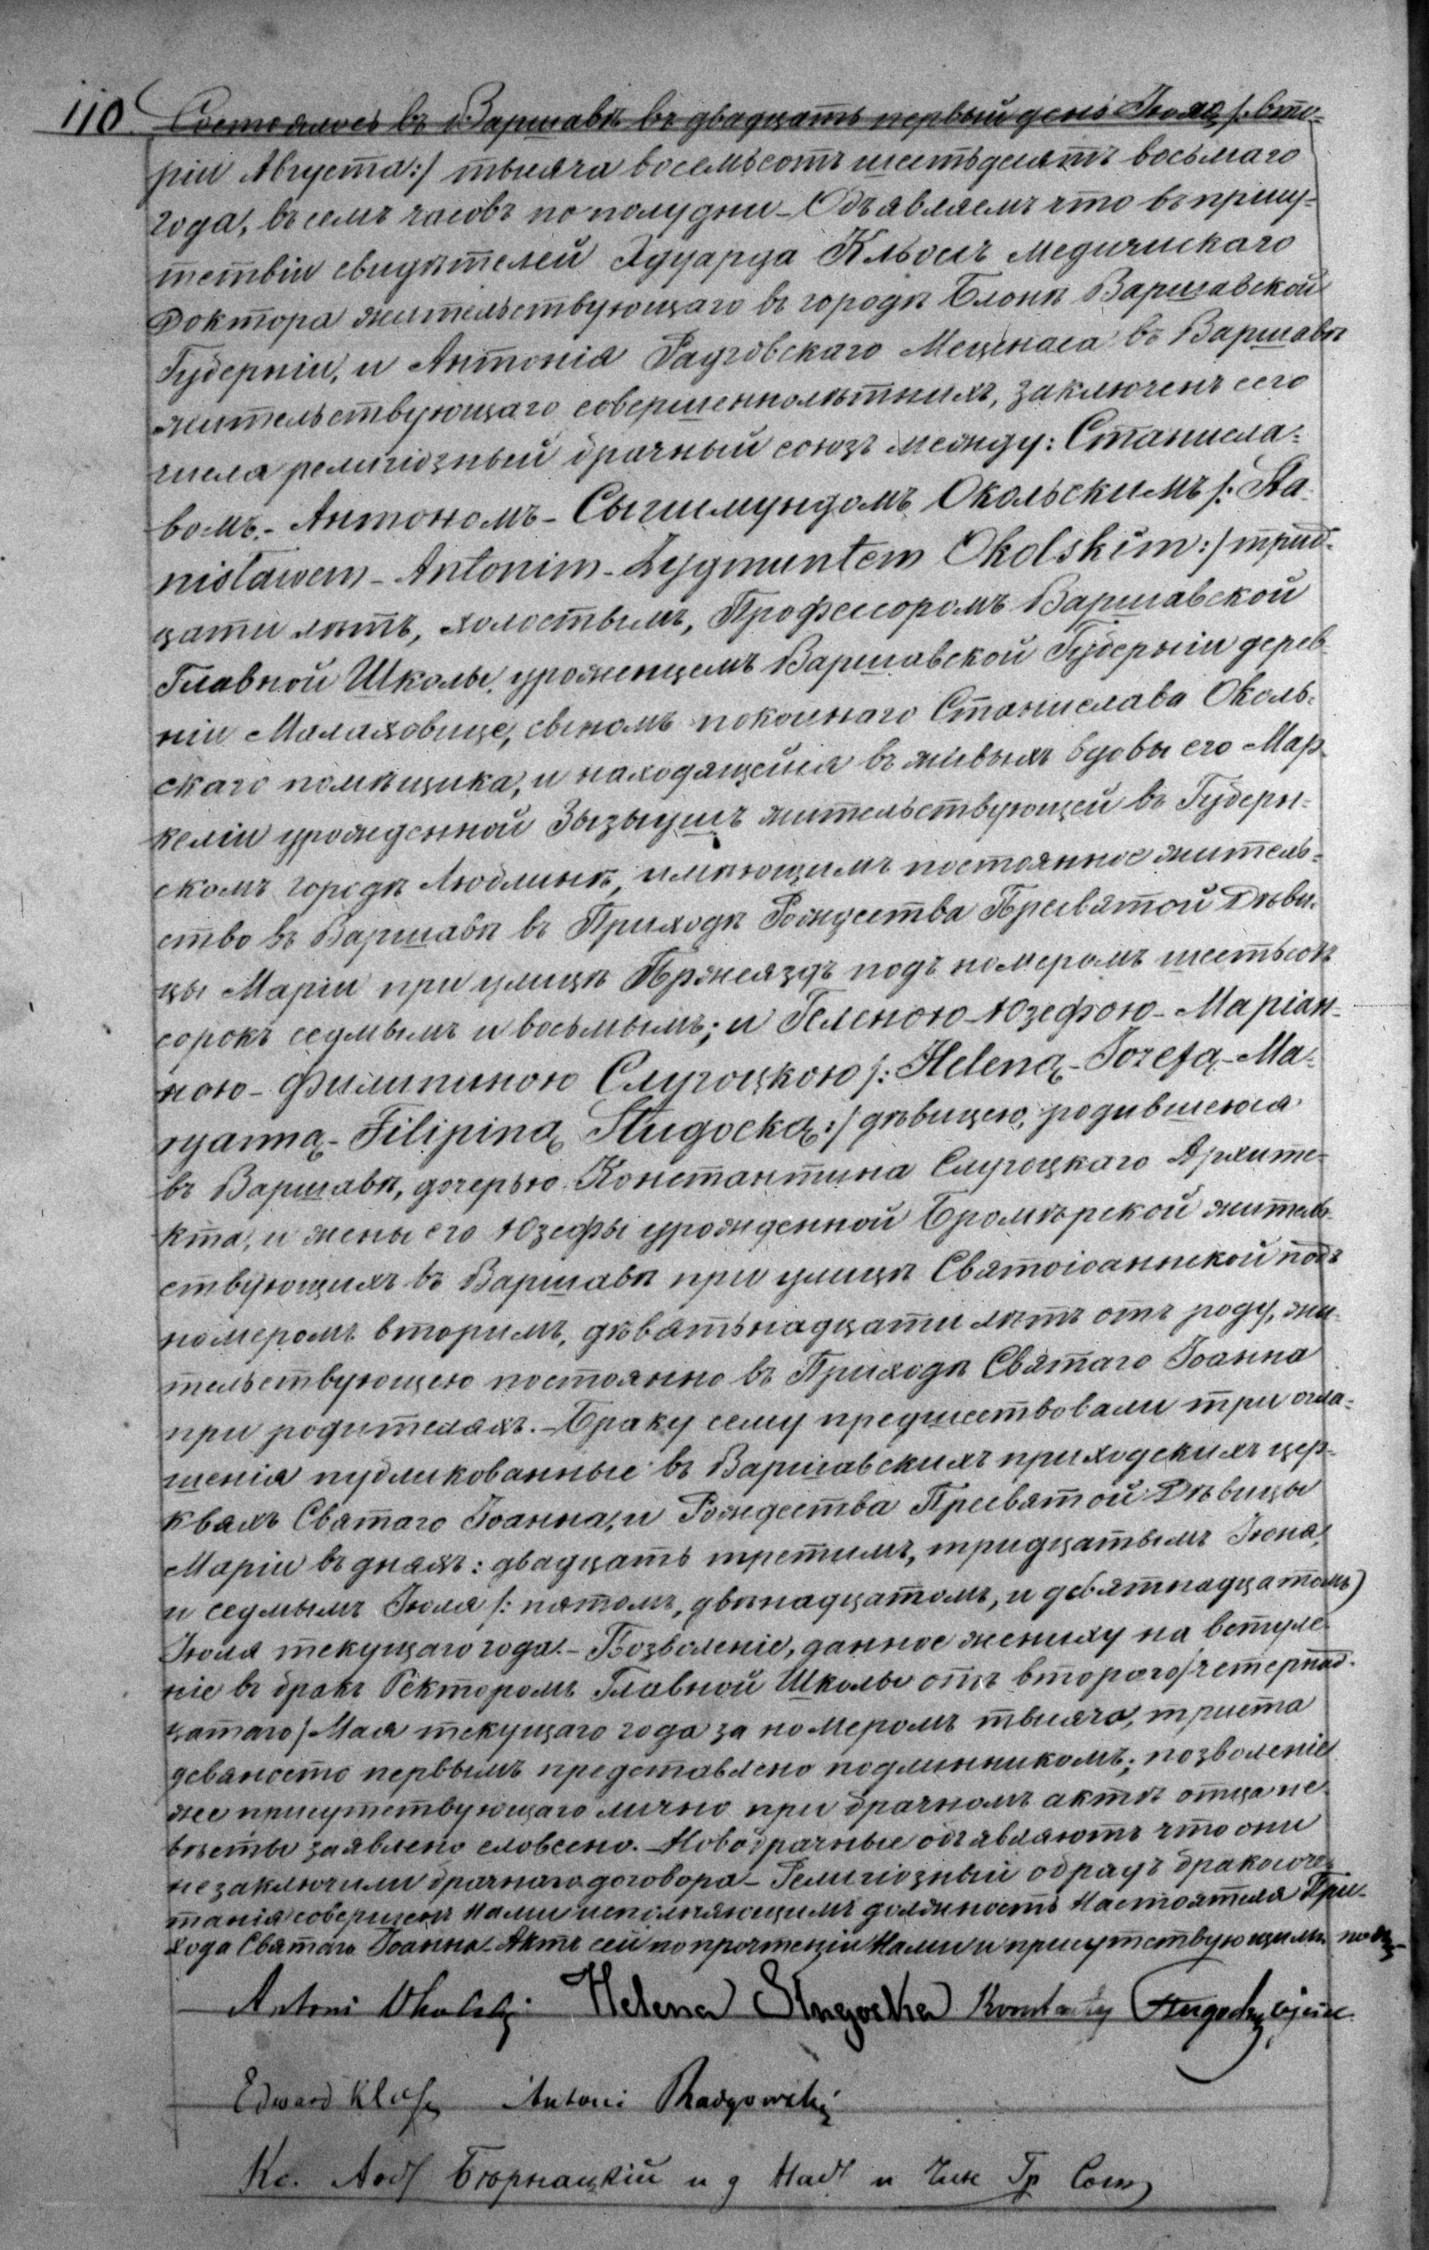 110. Состоялось въ Варшавѣ въ двадцать первый день Іюля /: вто-
ріи Августа:/ тысяча восемьсотъ шестьдесятъ восьмаго
года, въ семъ часовъ по полудни – Объявляемъ что въ присут-
тствіи свидѣтелей Эдуарда Кльосъ Медичискаго
Доктора жительствующаго въ городѣ Блонѣ Варшавской
Губерніи, и Антонія Радговскаго Меценаса въ Варшавѣ
жительствующаго совершеннолѣтнихъ, заключенъ сего
числа религіозный брачный союзъ между: Станисла-
вомъ – Антономъ – Сыгисмундомъ Окольскимъ /: Sta-
nisławem – Antonim – Zygmuntem Okolskim :/ трид-
цати лѣтъ, холостымъ, Профессоромъ Варшавской
Главной Школы, уроженцемъ Варшавской Губерніи дерев-
ніи Малаховице, сыномъ покойнаго Станислава Околь-
скаго помѣщика, и находящейся въ живыхъ вдовы его Мар-
келіи урожденной Зызыушъ жительствующей въ Губерн-
скомъ городѣ Люблинѣ, имѣющимъ постоянное житель-
ство въ Варшавѣ въ Приходѣ Рождества Пресвятой Дѣви-
цы Маріи при улицѣ Пржеяздъ подъ номеромъ шестьсотъ
сорокъ седмымъ и восьмымъ; и Геленою – Юзефою – Маріан-
ною – Филипиною Слугоцкою /: Heleną – Jozefą – Ma-
ryanną – Filipiną Sługocką :/ дѣвицею, родившеюся
въ Варшавѣ, дочерью Константина Слугоцкаго Архите-
кта, и жены его Юзефы урожденной Бромирской житель-
ствующихъ въ Варшавѣ при улицѣ Святоіоаннской подъ
номеромъ вторимъ, дѣвятьнадцати лѣтъ отъ роду, жи-
тельствующею постоянно въ Приходѣ Святаго Іоанна
при родителяхъ. – Браку сему предшествовали три огла-
шенія публикованные въ Варшавскихъ приходскихъ цер-
квахъ Святаго Іоанна, и Рождества Пресвятой Дѣвицы
Маріи въ дняхъ: двадцать третимъ, тридцатымъ Іюня,
и седмымъ Іюля /: пятомъ, двѣнадцатомъ, и девятнадцатомъ)
Іюля текущаго года. – Возволеніе, данное жениху на вступле-
ніе въ бракъ Ректоромъ Главной Школы отъ втораго / четернад-
цатаго / Мая текущаго года за номеромъ тысяча, триста
девяносто первымъ представлено подлинникомъ; позволеніе
же присутствующаго лично при брачномъ актѣ отца не-
вѣсты заявлено словесно. – Новобрачные объявляютъ что они
не заключили брачнаго договора – Религіозный обрядъ бракосоче-
танія совершенъ Нами исполняющимъ должность Настоятеля При-
хода Святаго Іоанна. Актъ сей по прочтеніи Нами и присутствующими
Antoni Okolski Helena Sługocka Konstanty Sługocki ojciec
Edward Kloss Antoni Radgowski
Кс. Бернацкій и д Наст и Чин Гр Сост